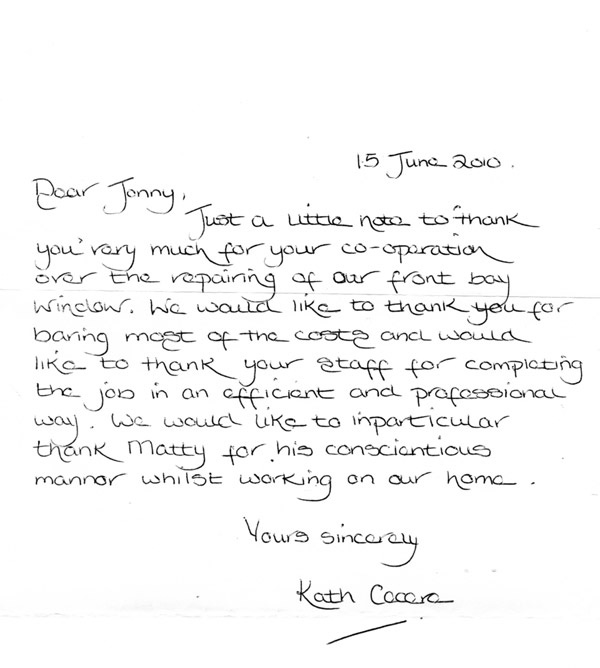 15 June 2010.
Dear Jonny,
Just a little note to thank
you very much for your co-operation
over the repairing of our front bay
window. We would like to thank you for
baring most of the costs and would
like to thank your staff for completing
the job in an efficient and professional
way. We would like to inparticular
thank Matty for his conscientious
manner whilst working on our home.
Yours sincerely
Kath